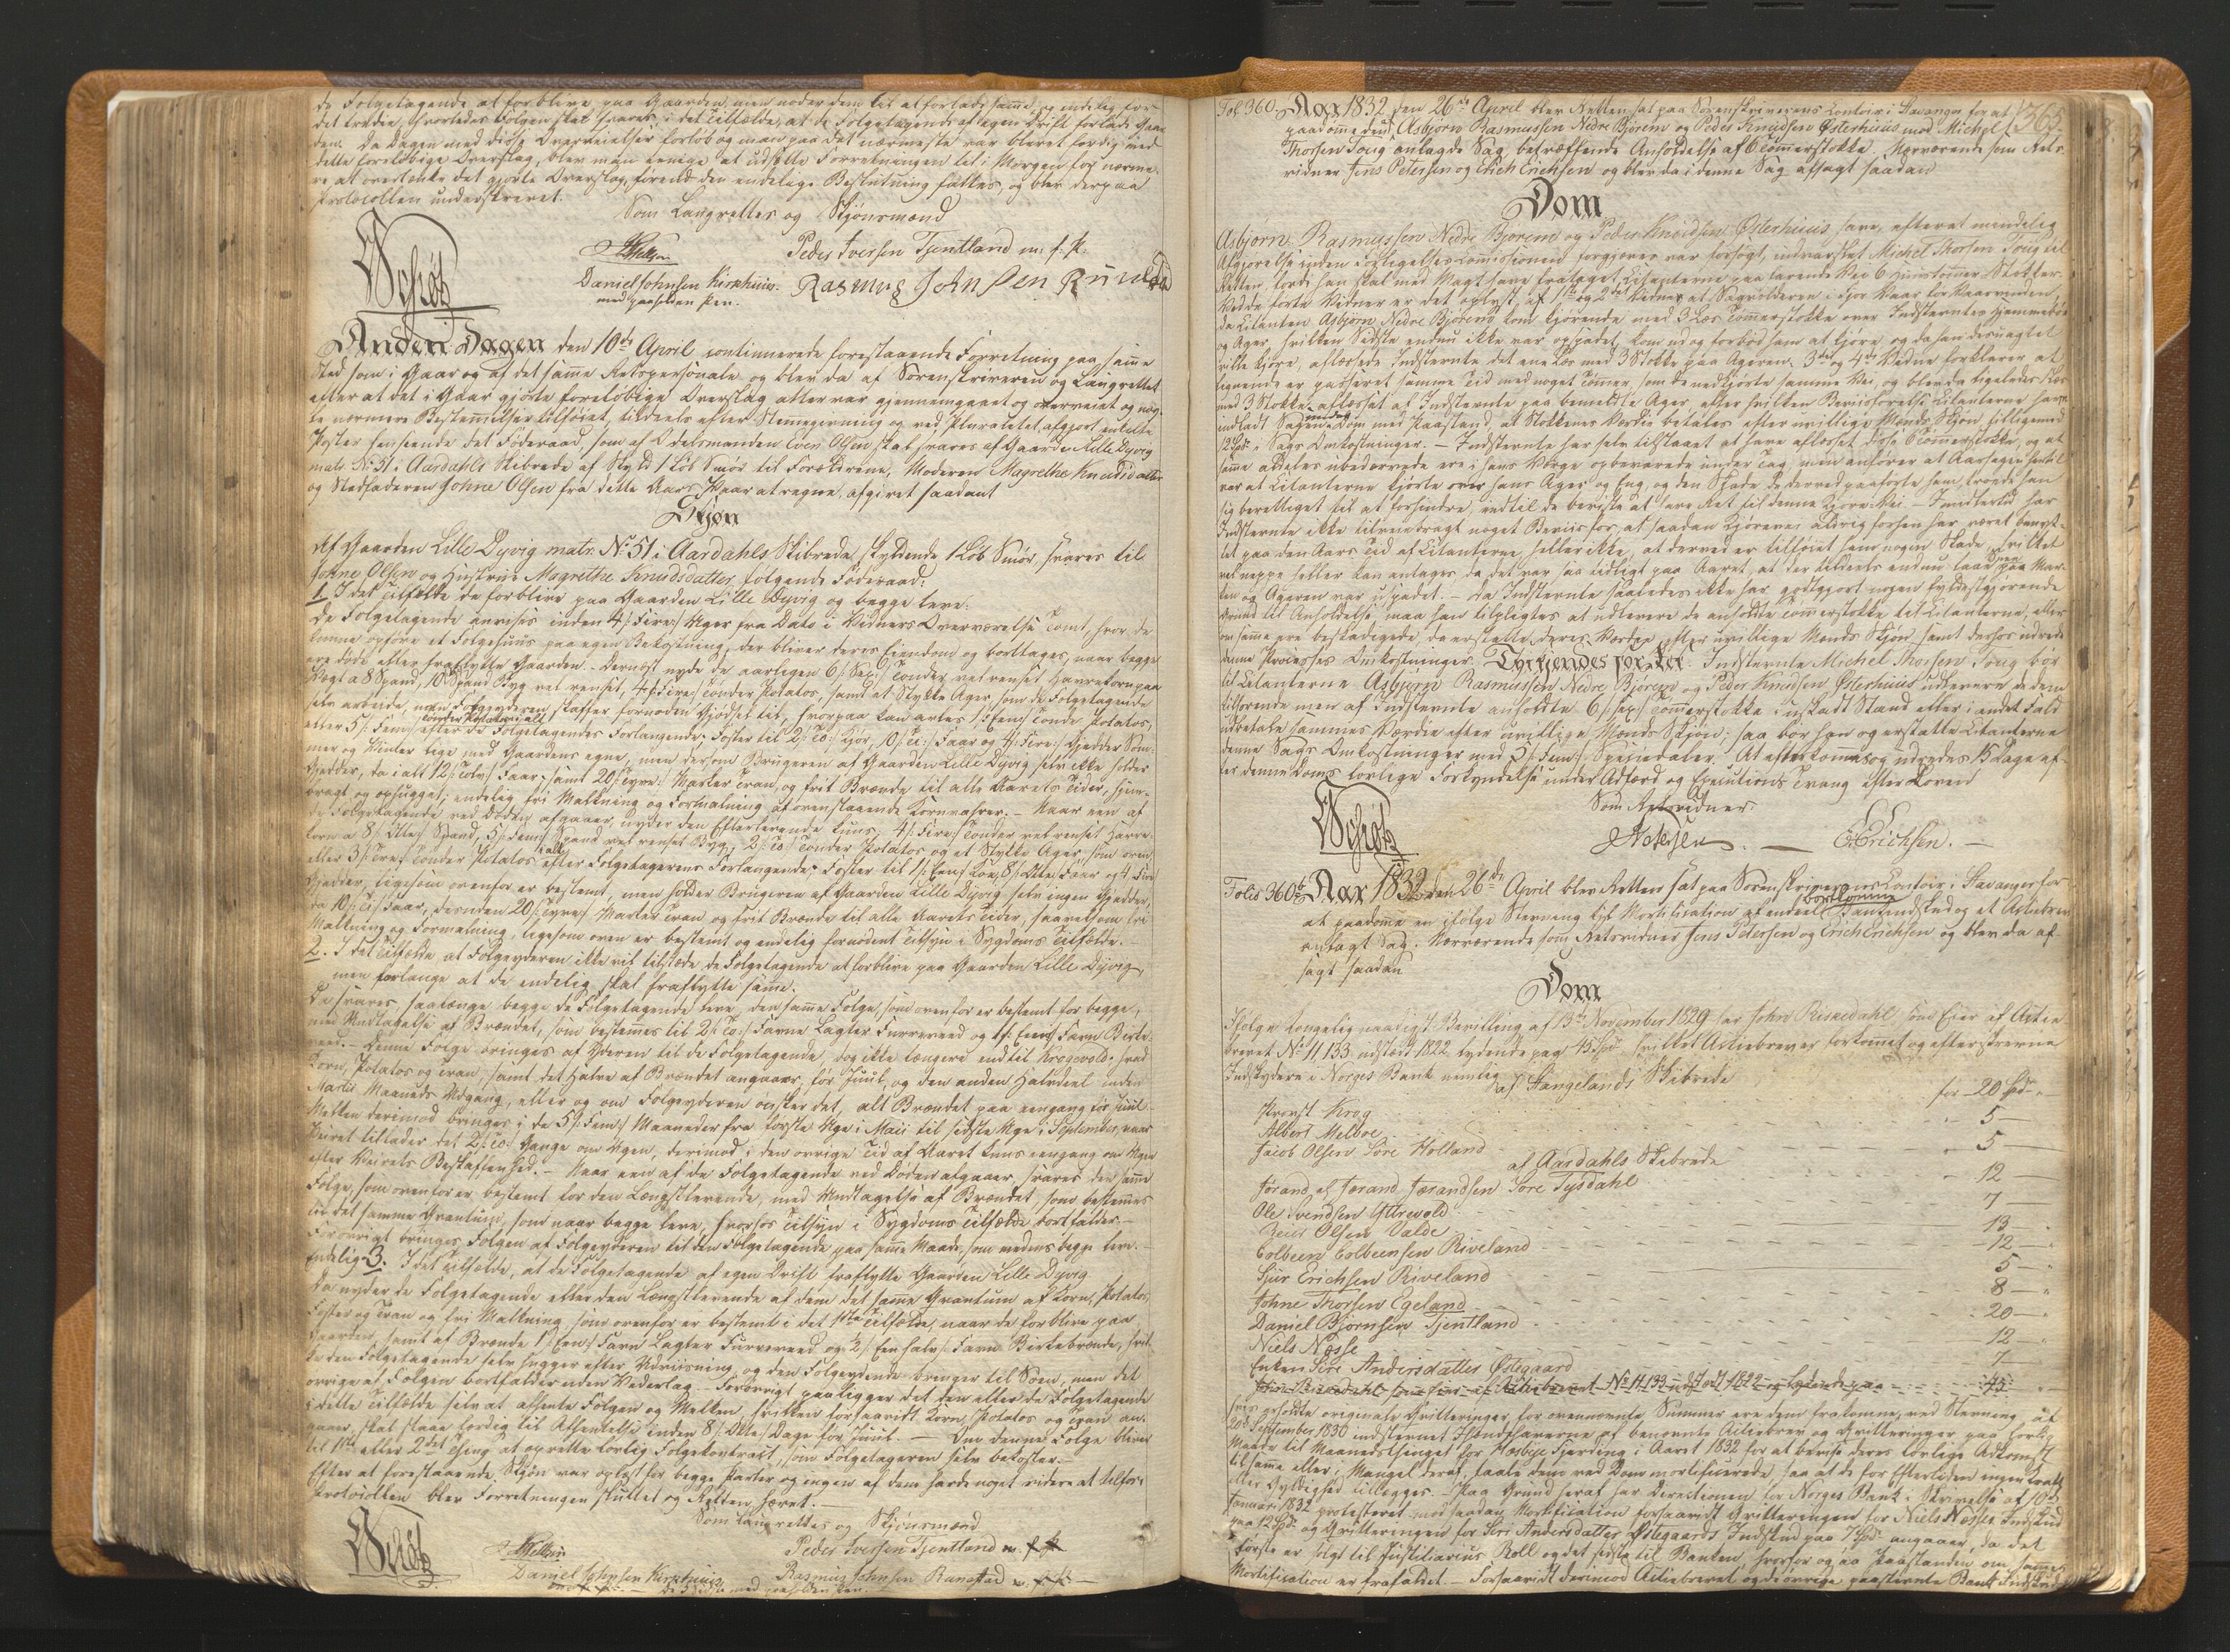 de Folgetagende at forblive paa Gaarden, men noder dem til at forlade samme, og endelig for
det tredie, hvorledes Folgen skal svares, i det Tilfælde, at de Folgetagende af egen Drift forlade Gaar
den. Da Dagen med disse Overveielser forlob og man paa det nærmeste var bleven færdig med
dette foreløbige Overslag, blev man enige at udsætte Forretningen til i Morgen for nærme
re at overtænke det gjorte Overslag, førend den endelige Beslutning fattes, og blev derpaa
Protocollen underskrevet.
Som Laugrettes og Skjønsmænd
Schiøtz
Peder Iversen Tjentland m. f. P.
Daniel Johnsen Kirkhuus. Rasmus Johnsen
med paaholden Pen.
Anden Dagen den 10de April continuerede forestaaende Forretning paa samme
Sted som i Gaar og af det samme Retspersonale og blev da af Sorenskriveren og Laugrettet
efter at det i Gaar gjorte foreløbige Overslag atter var gjennemgaaet og overveiet og nog
le nærmere Bestemmelser tilføiet, tildeels efter Stemmegivning og ved Pluralitet afgjort enkelte
Poster henseende det Føderaad, som af Odelsmanden Even Olsen skal svares af Gaarden Lille Dyvig
matr. No 51 i Aardahls Skibrede af Skyld 1 Løb Smør til Forældrene, Moderen Magrethe Knudsdatter
og Stedfaderen Johne Olsen fra dette Aars Vaar at regne, afgivet saadant
Skjøn
Af Gaarden Lille Dyvig matr. No 51 i Aardahls Skibrede, skyldende 1 Løb Smør, svares til
Johne Olsen og Hustrue Magrethe Knudsdatter følgende Føderaad:
1. I det Tilfælde de forblive paa Gaarden Lille Dyvig og begge leve:
De Folgetagende anvises inden 4 /: Fire :/ Uger fra Dato i Vidners Overværelse Tomt, hvor de
kunne opføre et Folgehuus paa egen Bekostning, der bliver deres Eiendom og borttages, naar begge
ere døde eller fraflytte Gaarden. - Dernæst nyde de aarligen 6 /: Sex :/ Tønder vel renset Havrekorn paa
Vægt a 8 Spand, 10 Spand Byg vel renset, 4 /: Fire :/ Tønder Potatos, samt et Stykke Ager, som de Folgetagende
selv arbeide, men Folgeyderen skaffer fornøden Gjødsel til, hvorpaa kan avles 1 /: Een :/ Tønde Potatos,
eller 5 /: Fem :/ Tønder Potatos i alt efter de Folgetagendes Forlangende; Foster til 2 /: To :/ Kjør, 10 /: Ti :/ Faar og 4 /: Fire :/ Gjedder Som-
mer og Vinter lige med Gaardens egne, men dersom Brugeren af Gaarden Lille Dyvig selv ikke holder
Gjedder, da i alt 12 /: Tolv :/ Faar; samt 20 /: Tyve :/ Marker Tran, og frit Brænde til alle Aarets Tider, hjem-
bragt og ophugget; endelig fri Maltning og Formaling af ovenstaaende Kornvahrer. - Naar een af
de Folgetagende ved Døden afgaaer, nyder den Efterlevende kuns: 4 /: Fire :/ Tønder vel renset Havre-
korn a 8 /: Otte :/ Spand, 5 /: Fem :/ Spand vel renset Byg, 2 /: To :/ Tønder Potatos og et Stykke Ager, som oven
eller 3 /: Tre :/ Tønder Potatos i alt efter Folgetagerens Forlangende; Foster til 1 /: Een :/ Koe, 8 /: Otte :/ Faar og 4 Fire
Gjedder, ligesom ovenfor er bestemt, men holder Brugeren af Gaarden Lille Dyvig selv ingen Gjedder,
da 10 /: Ti :/ Faar, desuden 20 /: Tyve :/ Marker Tran og frit Brænde til alle Aarets Tider, saavelsom fri
Maltning og Formaling, ligesom oven er bestemt og endelig fornødent Tilsyn i Sygdoms Tilfælde. -
2. I det Tilfælde at Folgeyderen ikke vil tilstede de Folgetagende at forblive paa Gaarden Lille Dyvig,
men forlange at de endelig skal fraflytte samme.
Da svares, saalænge begge de Folgetagende leve, den samme Folge, som ovenfor er bestemt for begge,
med Undtagelse af Brændet, som bestemmes til 2 /: To :/ Favne Lagter Furreveed og 1 /: Een :/ Favn Birke-
veed. - Denne Folge bringes af Yderen til de Folgetagende, dog ikke længere end til Krogevold, hvad
Korn, Potatos og Tran, samt det Halve af Brændet angaaer, før Juul, og den anden Halvdeel inden
Martii Maaneds Udgang, eller og om Folgeyderen ønsker det, alt Brændet paa eengang før Juul.
Melken derimod bringes i de 5 /: Fem :/ Maaneder fra første Uge i Maii til sidste Uge i September, naar
Veiret tillader det 2 /: To :/ Gange om Ugen, derimod i den øvrige Tid af Aaret kuns eengang om Ugen
efter Veirets Beskaffenhed. - Naar een af de Folgetagende ved Døden afgaaer, svares den samme
Folge, som ovenfor er bestemt for den Længstlevende, med Undtagelse af Brændet, som bestemmes
til det samme Qvantum, som naar begge leve, hvorhos Tilsyn i Sygdoms Tilfælde bortfalder -
Forøvrigt bringes Folgen af Folgeyderen til den Folgetagende paa samme Maade, som medens begge leve. -
Endelig 3. I det Tilfælde, at de Folgetagende af egen Drift fraflytte Gaarden Lille Dyvig
Da nyder de Folgetagende eller den Længstlevende af dem det samme Qvantum af Korn, Potatos,
Foster og Tran og fri Maltning som ovenfor er bestemt i det 1ste Tilfælde, naar de forblive paa
Gaarden, samt af Brænde 1 /: Een :/ Favn Lagter Furreveed og 1/2 /: Een halv :/ Favn Birkebrænde, hvil-
ke den Folgetagende selv hugger efter Udviisning og den Folgeydende bringer til Søen, men det
øvrige af Folgen bortfalder uden Vederlag. - Forøvrigt paaligger det den eller de Folgetagende
i dette Tilfælde selv at afhente Folgen og Melken, hvilken forsaavidt Korn, Potatos og Tran an-
gaaer, skal staae færdig til Afhentelse inden 8 /: Otte :/ Dage før Juul. - Om denne Folge bliver
til 1ste eller 2det Ting at oprette lovlig Folgekontract, som Folgetageren selv bekoster. -
Efter at forestaaende Skjøn var oplæst for begge Parter og ingen af dem havde noget videre at tilføre
Protocollen blev Forretningen sluttet og Retten hævet. -
Som Laugrettes og Skjønsmænd
Schiøtz
Peder Iversen Tjentland m. f. P.
Daniel Johnsen Kirkhuus Rasmus Johnsen
Fol. 360. Aar 1832 den 26de April blev Retten sat paa Sorenskriverens Contoir i Stavanger for at 365.
paadømme den af Asbjørn Rasmussen Nedre Bjørem og Peder Knudsen Østerhuus mod Michel
Thorsen Toug anlagde Sag, betræffende Anholdelse af 6 Tømmerstokke. Nærværende som Rets-
vidner Jens Petersen og Erich Erichsen og blev da i denne Sag afsagt saadan
Dom
Asbjørn Rasmussen Nedre Bjørem og Peder Knudsen Østerhuus have, efterat mindelig
Afgjørelse inden Forligelses Commissionen forgjæves var forsøgt, indvarslet Michel Thorsen Toug til
Retten, fordi han skal med Magt have frataget Citanterne paa farende Vei 6 Tømmer Stokker.
Vedde førte Vidner er det oplyst, af 1ste og 2det Vidne, at Sagvolderen i Fjor Vaar for Vaarvinden,
da Citanten Asbjørn Nedre Bjørem kom kjørende med 3 Læs Tømmerstokke over Indstevntes Hjemmebøe
og Ager, hvilken Sidste endnu ikke var opspadet, kom ud og forbød ham at kjøre, og da han desuagtet
vilde kjøre, aflæssede Indstevnte det ene Læs med 3 Stokke paa Ageren. 3die og 4de Vidne forklarer at
ligeende er passeret samme Tid med noget Tømmer, som de nedkjørte samme Vei, og blev da ligeledes 1 Læs
med 3 Stokke aflæsset af Indstevnte paa bemeldte Ager, efter hvilken Beviisførelse Citanterne have
indladt Sagen under Dom med Paastand, at Stokkenes Værdie betales efter uvillige Mænds Skjøn tilligemed
12 Spd. i Sags Omkostninger. - Indstevnte har selv tilstaaet at have aflæsset disse 6 Tømmerstokke, og at
samme aldeles ubedærvede ere i hans Værge opbevarede under Tag, men anfører at Aarsagen hertil
var at Citanterne kjørte over hans Ager og Eng, og den Skade, de derved paaførte ham, troede han
sig berettiget til at forhindre, indtil de beviste at have Ret til denne Kjøre Vei. - Imidlertid har
Indstevnte ikke tilveiebragt noget Beviis for, at saadan Kjørevei aldrig forhen har været benyt-
tet paa den Aars Tid af Citanterne, heller ikke, at derved er tilføiet ham nogen Skade, hvilket
vel neppe heller kan antages, da det var saa tidligt paa Aaret, at der tildeels endnu laae Snee paa Mar-
ken og Ageren var uspadet. - Da Indstevnte saaledes ikke har godtgjort nogen fyldestgjørende
Grund til Anholdelse, maa han tilpligtes at udlevere de anholdte Tømmerstokke til Citanterne, eller
om samme ere beskadigede, da erstatte deres Værdie efter uvillige Mænds Skjøn, samt derhos udrede
denne Processes Omkostninger. Thi kjendes for Ret: Indstevnte Michel Thorsen Toug bør
til Citanterne Asbjørn Rasmussen Nedre Bjørem og Peder Knudsen Østerhuus udlevere de dem
tilhørende men af Indstevnte anholdte 6 /: Sex :/ Tømmerstokke i uskadt Stand eller i andet Fald
udbetale sammes Værdie efter uvillige Mænds Skjøn; saa bør han og erstatte Citanterne
denne Sags Omkostninger med 5 /: Fem :/ Speciedaler. At efterkommes og udredes 15 Dage ef-
ter denne Doms lovlige Forkyndelse under Adfærd og Executions Tvang efter Loven
Som Retsvidner
Schiøtz
J Petersen. - E. Erichsen. -
Folio 360. Aar 1832 den 26de April blev Retten sat paa Sorenskriverens Contoir i Stavanger for
at paadømme en ifølge Stevning til Mortification af endeel bortkomne Bankindskud og et Actiebrev
anlagt Sag. Nærværende som Retsvidner Jens Petersen og Erich Erichsen, og blev da af-
sagt saadan
Dom
Ifølge kongelig naadigst Bevilling af 13de November 1829 har John Riskedahl som Eier af Actie
brevet No 11,133 udstedt 1822 lydende paa 45 Spd. hvilket Actiebrev er forkommet og efterskrevne
Indskydere i Norges Bank nemlig
af Hangelands Skibrede
Provst Krog for 20 Spd. -
Albert Melboe 5 -
Jacob Olsen Søre Holland 5 -
af Aardahls Skibrede
Jørand el. Jærand Jærandsen Søre Tysdahl 12 -
Ole Svendsen Ytrevold 7 -
Peier Olsen Valde 13 -
Colbeen Colbeensen Riveland 12 -
Sjur Erichsen Riveland 5 -
Johne Thorsen Egeland 8 -
Daniel Bjørnsen Tjentland 20 -
Niels Nøsse 12 -
Enken Siri Andersdatter Østegaard 7 -
John Riskedahl som Eier af Actiebrevet No 11,133 udstedt 1822 og lydende paa 45
hvis erholdte originale Qvitteringer for ovennævnte Summer ere dem frakomne, ved Stevning af
20de September 1830 indstevnet Ihændehaverne af benævnte Actiebrev og Qvitteringer paa lovlig
Maade til Maanedstinget for Hesbøe Fjerding i Aaret 1832 for at bevise deres lovlige Adkomst
til samme eller i Mangel deraf, taale dem ved Dom mortificerede, saa at de for Eftertiden ingen Kraft
eller Gyldighed tillægges. - Paa Grund heraf har Directionen for Norges Bank i Skrivelse af 10de
Januari 1832 protesteret mod saadan Mortification forsaavidt Qvitteringen for Niels Nøsses Indskud
paa 12 Spd. og Qvitteringen for Siri Andersdatter Østegaards Indskud paa 7 Spd. angaaer, da det
første er solgt til Justitiarius Roll og det sidste til Banken, hvorfor og saa Paastanden om sammes
Mortification er frafaldet. - Forsaavidt derimod Actiebrevet og de øvrige paastevnte Bank Indskud